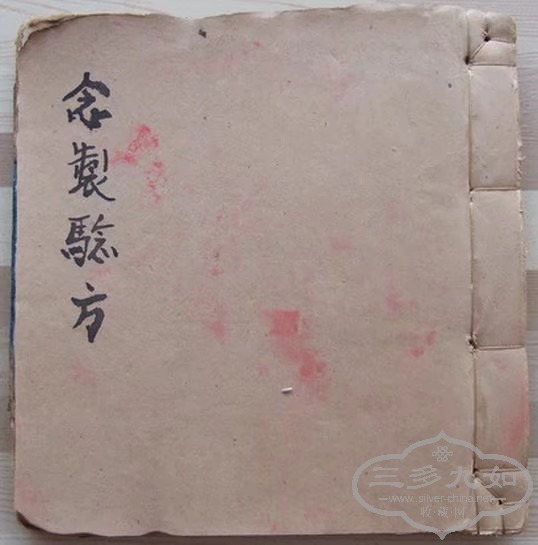 念製騐方
三多九如
www.silver-china.net
收藏网